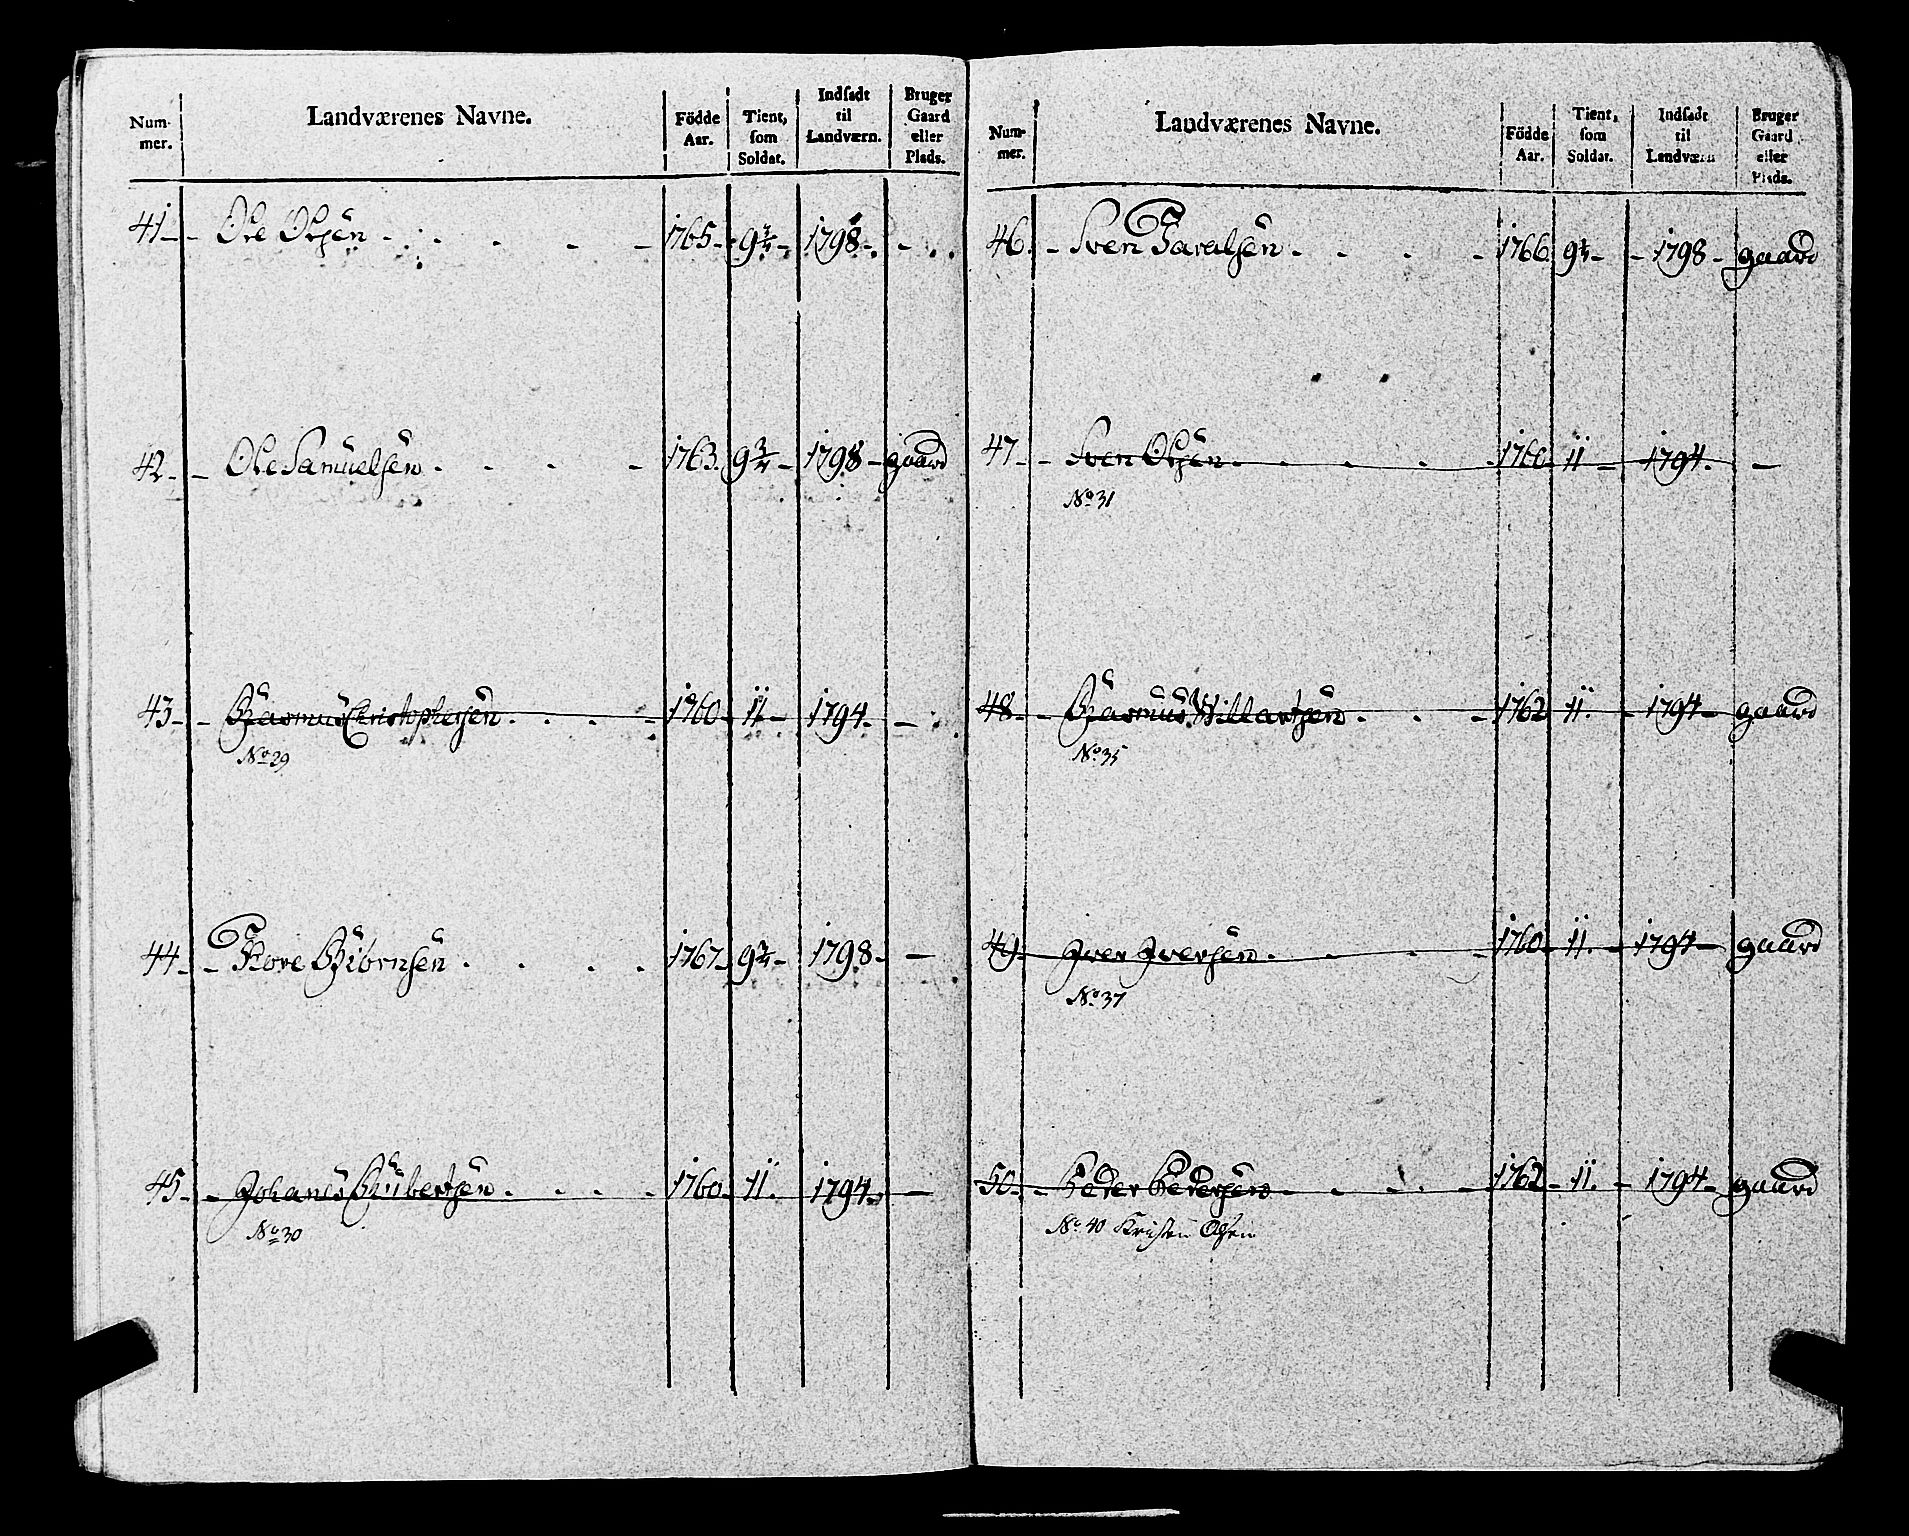 Num-
mer.
Landværenes Navne.
Födde
Aar.
Tient,
som
Soldat.
Indsadt
til
Landværn.
Bruger
Gaard
eller
Plads.
41 - - Ole Olsen - 1765 - 9 3/4 - 1798 - -
42 - - Ole Samuelsen - 1763 9 3/4 - 1798 - gaard
43 - - Rasmus Christophersen - 1760 - 11 - 1794 - -
No 29
44 - - Tore Biörnsen - 1767 - 9 3/4 - 1798 - -
45 - - Johanes - 1760 - 11 - 1794 - -
No 30
Num-
mer.
Landværenes Navne.
Födde
Aar.
Tient,
som
Soldat.
Indsadt
til
Landværn
Bruger
Gaard
eller
Plads.
46 - Sven - 1766 9 3/4 - - 1798 - gaard
47 - - Sven Olsen - 1760 - 11 - 1794 - -
No 31
48 - - Rasmus Willartsen - 1762 11 - 1794 - gaard
No 35
49 - Iver Iversen - 1760 - 11 - 1794 - gaard
No 37
50 - - Peder Pedersen - 1762 - 11 - 1794 - gaard
No 40 Kristen Olsen